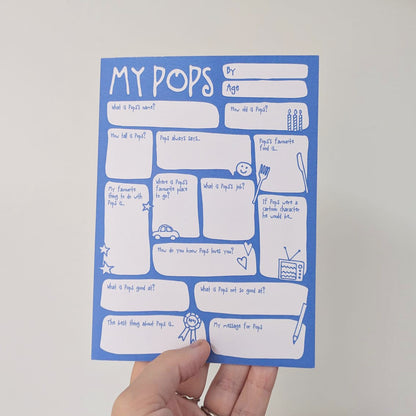 MY POPS
By
Age
What is Pops's name?
How old is Pops?
How tall is Pops?
Pops always says...
Pops's favourite
food is...
My favourite
thing to do with
Pops is...
Where is Pops's
favourite place
to go?
What is Pops's job?
If Pops were a
cartoon character
he would be...
How do you know Pops loves you?
What is Pops good at?
What is Pops not so good at?
The best thing about Pops is...
My message for Pops